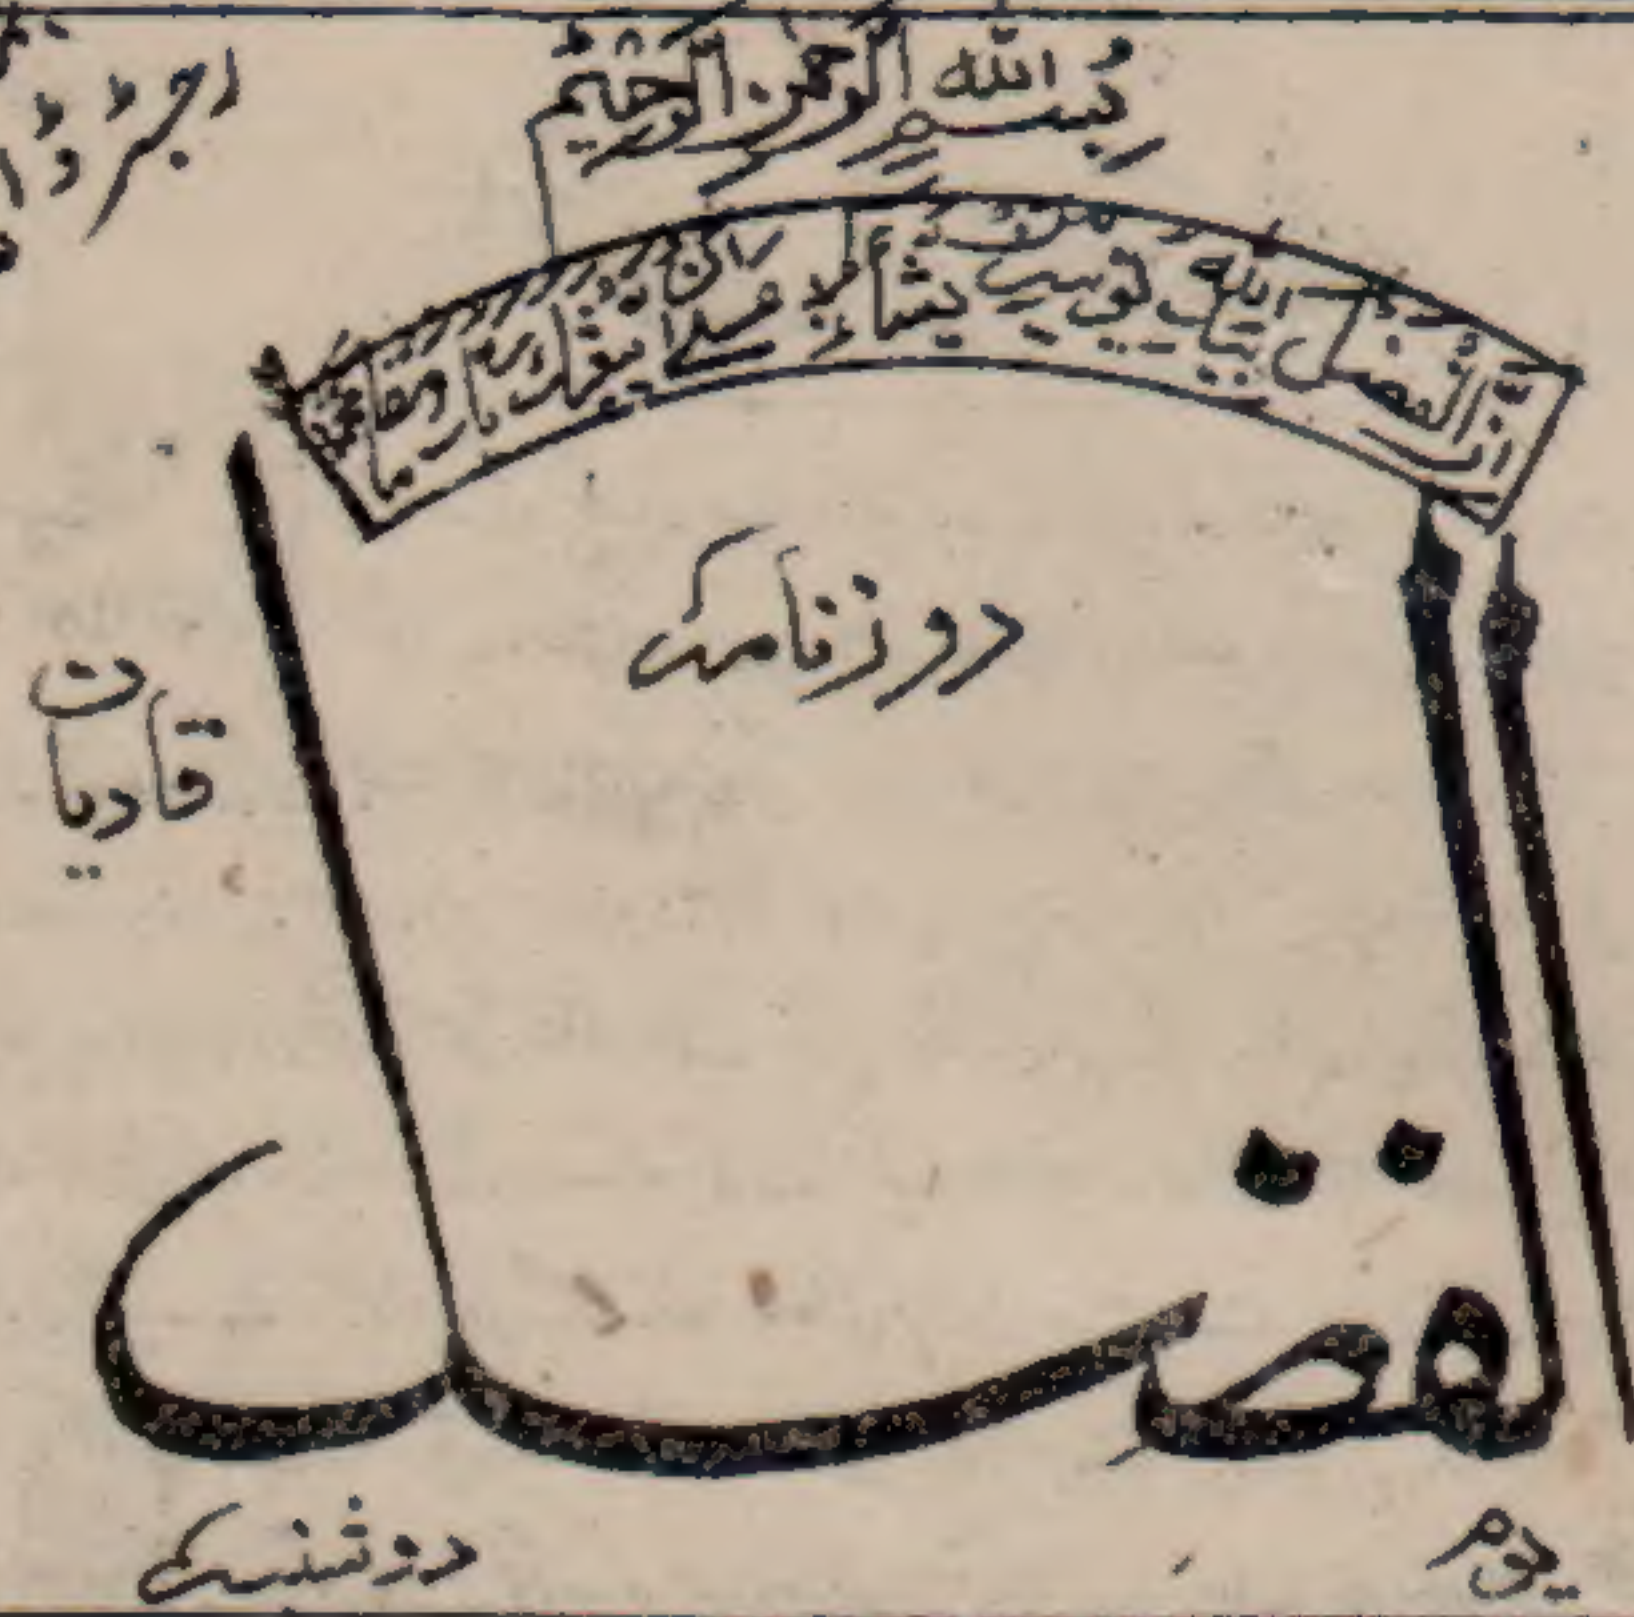 بسم الله الرحمن الرحيم
ان الفضل بيد الله يؤتيه من يشاء عسى ان يبعثك ربك مقاما محمودا
روزنامہ
قادیان
الفضل
یوم دوشنبہ